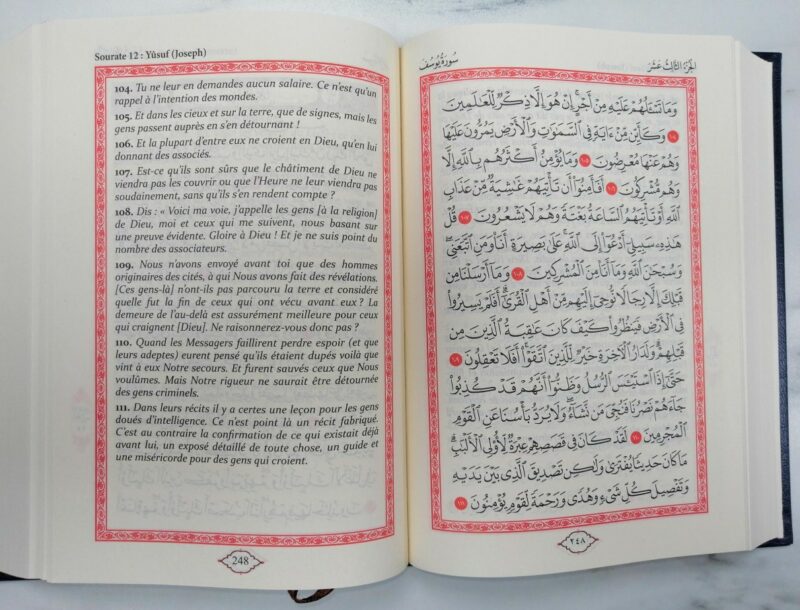 Sourate 12 : Yûsuf (Joseph)
104. Tu ne leur en demandes aucun salaire. Ce n'est qu'un
rappel à l'intention des mondes.
105. Et dans les cieux et sur la terre, que de signes, mais les
gens passent auprès en s'en détournant !
106. Et la plupart d'entre eux ne croient en Dieu, qu'en lui
donnant des associés.
107. Est-ce qu'ils sont sûrs que le châtiment de Dieu ne
viendra pas les couvrir ou que l'Heure ne leur viendra pas
soudainement, sans qu'ils s'en rendent compte ?
108. Dis : « Voici ma voie, j'appelle les gens [à la religion]
de Dieu, moi et ceux qui me suivent, nous basant sur
une preuve évidente. Gloire à Dieu ! Et je ne suis point du
nombre des associateurs.
109. Nous n'avons envoyé avant toi que des hommes
originaires des cités, à qui Nous avons fait des révélations.
[Ces gens-là] n'ont-ils pas parcouru la terre et considéré
quelle fut la fin de ceux qui ont vécu avant eux ? La
demeure de l'au-delà est assurément meilleure pour ceux
qui craignent [Dieu]. Ne raisonnerez-vous donc pas ?
110. Quand les Messagers faillirent perdre espoir (et que
leurs adeptes) eurent pensé qu'ils étaient dupés voilà que
vint à eux Notre secours. Et furent sauvés ceux que Nous
voulûmes. Mais Notre rigueur ne saurait être détournée
des gens criminels.
111. Dans leurs récits il y a certes une leçon pour les gens
doués d'intelligence. Ce n'est point là un récit fabriqué.
C'est au contraire la confirmation de ce qui existait déjà
avant lui, un exposé détaillé de toute chose, un guide et
une miséricorde pour des gens qui croient.
248
سُورَةُ يُوسُفَ
الجُزْءُ الثَّالِثَ عَشَرَ
وَمَا تَسْـَٔلُهُمْ عَلَيْهِ مِنْ أَجْرٍ إِنْ هُوَ إِلَّا ذِكْرٌ لِّلْعَٰلَمِينَ
١٠٤ وَكَأَيِّن مِّنْ ءَايَةٍ فِي ٱلسَّمَٰوَٰتِ وَٱلْأَرْضِ يَمُرُّونَ عَلَيْهَا
وَهُمْ عَنْهَا مُعْرِضُونَ ١٠٥ وَمَا يُؤْمِنُ أَكْثَرُهُم بِٱللَّهِ إِلَّا
وَهُم مُّشْرِكُونَ ١٠٦ أَفَأَمِنُوٓا۟ أَن تَأْتِيَهُمْ غَٰشِيَةٌ مِّنْ عَذَابِ
ٱللَّهِ أَوْ تَأْتِيَهُمُ ٱلسَّاعَةُ بَغْتَةً وَهُمْ لَا يَشْعُرُونَ ١٠٧ قُلْ
هَٰذِهِۦ سَبِيلِيٓ أَدْعُوٓا۟ إِلَى ٱللَّهِ عَلَىٰ بَصِيرَةٍ أَنَا۠ وَمَنِ ٱتَّبَعَنِي
وَسُبْحَٰنَ ٱللَّهِ وَمَآ أَنَا۠ مِنَ ٱلْمُشْرِكِينَ ١٠٨ وَمَآ أَرْسَلْنَا مِن
قَبْلِكَ إِلَّا رِجَالًا نُّوحِيٓ إِلَيْهِم مِّنْ أَهْلِ ٱلْقُرَىٰٓ أَفَلَمْ يَسِيرُوا۟
فِي ٱلْأَرْضِ فَيَنظُرُوا۟ كَيْفَ كَانَ عَٰقِبَةُ ٱلَّذِينَ مِن
قَبْلِهِمْ وَلَدَارُ ٱلْءَاخِرَةِ خَيْرٌ لِّلَّذِينَ ٱتَّقَوْا۟ أَفَلَا تَعْقِلُونَ ١٠٩
حَتَّىٰٓ إِذَا ٱسْتَيْـَٔسَ ٱلرُّسُلُ وَظَنُّوٓا۟ أَنَّهُمْ قَدْ كُذِبُوا۟
جَآءَهُمْ نَصْرُنَا فَنُجِّيَ مَن نَّشَآءُ وَلَا يُرَدُّ بَأْسُنَا عَنِ ٱلْقَوْمِ
ٱلْمُجْرِمِينَ ١١٠ لَقَدْ كَانَ فِي قَصَصِهِمْ عِبْرَةٌ لِّأُو۟لِي ٱلْأَلْبَٰبِ
مَا كَانَ حَدِيثًا يُفْتَرَىٰ وَلَٰكِن تَصْدِيقَ ٱلَّذِي بَيْنَ يَدَيْهِ
وَتَفْصِيلَ كُلِّ شَيْءٍ وَهُدًى وَرَحْمَةً لِّقَوْمٍ يُؤْمِنُونَ ١١١
٢٤٨